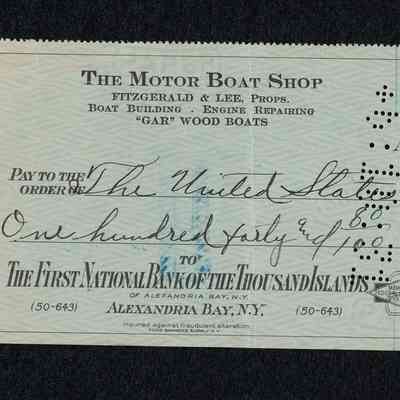 THE MOTOR BOAT SHOP
FITZGERALD & LEE, PROPS.
BOAT BUILDING - ENGINE REPAIRING
"GAR" WOOD BOATS
PAY TO THE
ORDER OF The United States
One hundred forty and 80/100
TO
THE FIRST NATIONAL BANK OF THE THOUSAND ISLANDS
OF ALEXANDRIA BAY, N.Y.
(50-643) ALEXANDRIA BAY, N.Y. (50-643)
Insured against fraudulent alteration